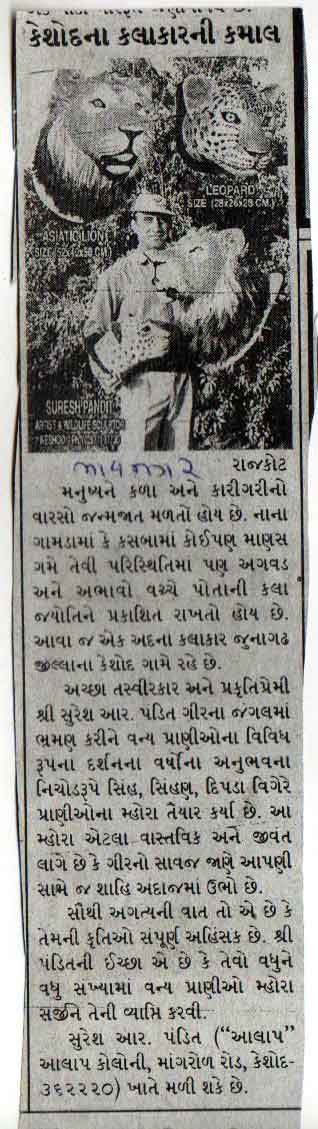 કેશોદના કલાકારની કમાલ
LEOPARD
SIZE (28x26x28 CM.)
ASIATIC LION
SIZE (52x42x50 CM.)
SURESH PANDIT
ARTIST & WILDLIFE SCULPTOR
રાજકોટ
મનુષ્યને કળા અને કારીગરીનો
વારસો જન્મજાત મળતો હોય છે. નાના
ગામડામાં કે કસબામાં કોઈપણ માણસ
ગમે તેવી પરિસ્થિતિમા પણ અગવડ
અને અભાવો વચ્ચે પોતાની કલા
જ્યોતિને પ્રકાશિત રાખતો હોય છે.
આવા જ એક અદના કલાકાર જુનાગઢ
જીલ્લાના કેશોદ ગામે રહે છે.
અચ્છા તસ્વીરકાર અને પ્રકૃતિપ્રેમી
શ્રી સુરેશ આર. પંડિત ગીરના જંગલમાં
ભ્રમણ કરીને વન્ય પ્રાણીઓના વિવિધ
રૂપના દર્શનના વર્ષોના અનુભવના
નિચોડરૂપે સિંહ, સિંહણ, દિપડા વિગેરે
પ્રાણીઓના મ્હોરા તૈયાર કર્યા છે. આ
મ્હોરા એટલા વાસ્તવિક અને જીવંત
લાગે છે કે ગીરનો સાવજ જાણે આપણી
સામે જ શાહિ અંદાજમાં ઉભો છે.
સૌથી અગત્યની વાત તો એ છે કે
તેમની કૃતિઓ સંપૂર્ણ અહિંસક છે. શ્રી
પંડિતની ઈચ્છા એ છે કે તેવો વધુને
વધુ સંખ્યામાં વન્ય પ્રાણીઓ મ્હોરા
સર્જીને તેની વ્યાપ્તિ કરવી.
સુરેશ આર. પંડિત (“આલાપ”
આલાપ કોલોની, માંગરોળ રોડ, કેશોદ-
૩૬૨૨૨૦) ખાતે મળી શકે છે.